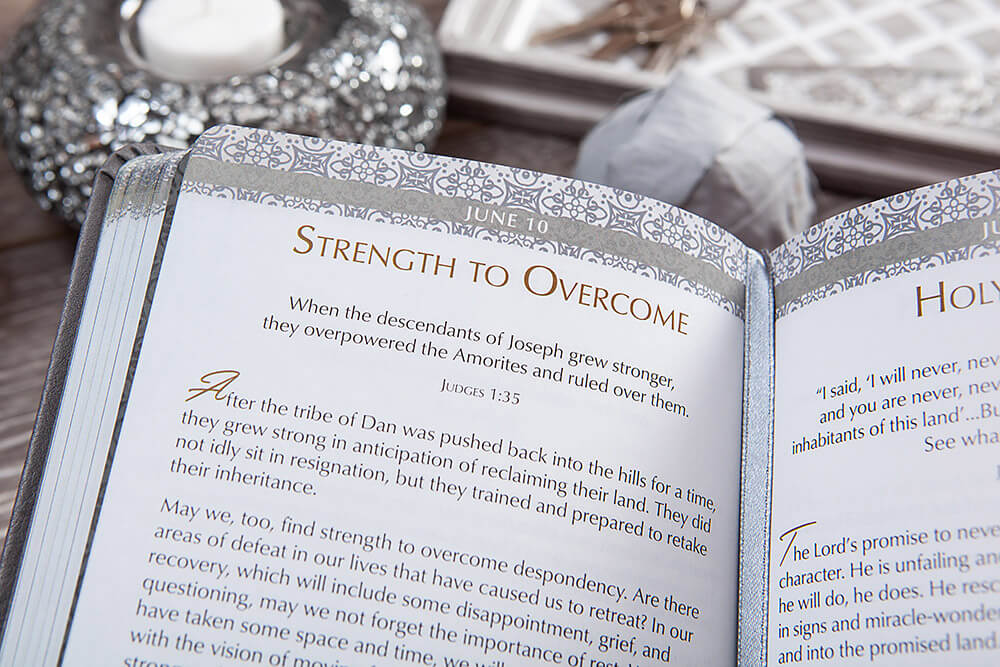 JUNE 10
STRENGTH TO OVERCOME
When the descendants of Joseph grew stronger,
they overpowered the Amorites and ruled over them.
JUDGES 1:35
After the tribe of Dan was pushed back into the hills for a time,
they grew strong in anticipation of reclaiming their land. They did
not idly sit in resignation, but they trained and prepared to retake
their inheritance.
May we, too, find strength to overcome despondency. Are there
areas of defeat in our lives that have caused us to retreat? In our
recovery, which will include some disappointment, grief, and
questioning, may we not forget the importance of rest.
have taken some space and time, we will
with the vision of
"I said, 'I will never, nev
and you are never, never
inhabitants of this land'...Bu
See wha
The Lord's promise to neve
character. He is unfailing an
he will do, he does. He resc
in signs and miracle-wonde
and into the promised land